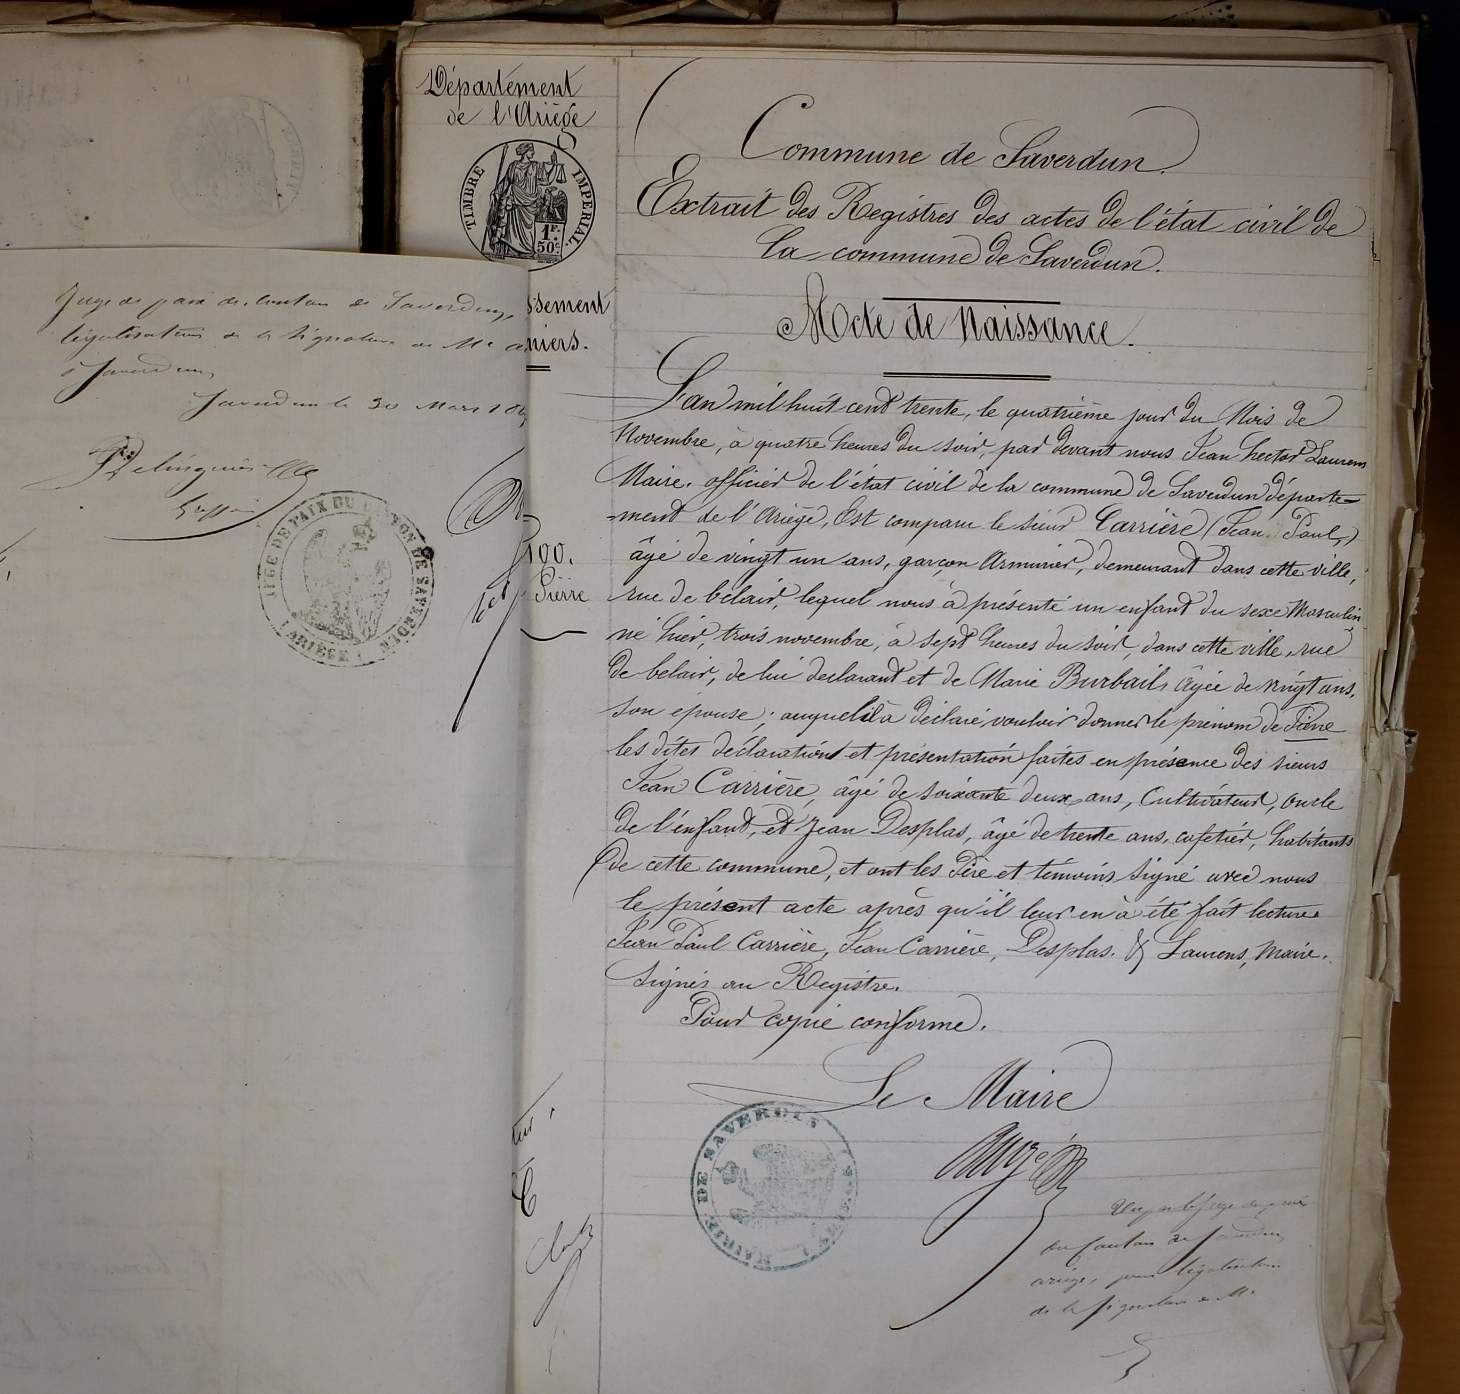 Département
de l'Ariège
TIMBRE IMPERIAL
1F.
50c
ssement
niers.
100.
Pierre
Commune de Saverdun.
Extrait des Registres des actes de l'état civil de
la commune de Saverdun.
Acte de Naissance.
L'an mil huit cent trente, le quatrième jour du Mois de
Novembre, à quatre heures du soir, par devant nous Jean hector Laurens
Maire, officier de l'état civil de la commune de Saverdun départe-
-ment de l'Ariège, Est comparu le sieur Carrière (Jean Paul)
âgé de vingt un ans, garçon Armurier, demeurant dans cette ville,
rue de bélair, lequel nous à présenté un enfant du sexe Masculin
né hier, trois novembre, à sept heures du soir, dans cette ville, rue
de belair, de lui declarant et de Marie Burbail, âgée de vingt ans,
son épouse; auquel il à déclaré vouloir donner le prénom de Pierre
les dites déclaration et présentation faites en présence des sieurs
Jean Carrière, âgé de soixante deux ans, Cultivateur, oncle
de l'enfant, et Jean Desplas, âgé de trente ans, cafetier, habitants
de cette commune, et ont les Père et témoins signé avec nous
le présent acte après qu'il leur en à été fait lecture.
Jean Paul Carrière, Jean Carrière, Desplas. & Laurens, Maire.
Signés au Registre.
Pour copie conforme.
Le Maire
MAIRIE DE SAVERDUN
Vu par le Juge de paix
du Canton de Saverdun
ariège, pour légalisation
de la signature de Mr
Juge de paix du Canton de Saverdun,
légalisation de la signature de Mr
à Saverdun
Saverdun le 30 Mars
JUGE DE PAIX DU CANTON DE SAVERDUN
(ARIÈGE)